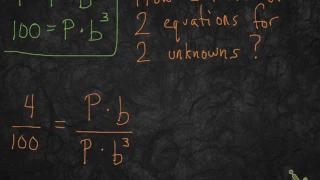 100 = P · b³
How
2 equations for
2 unknowns?
4/100 = P · b / P · b³